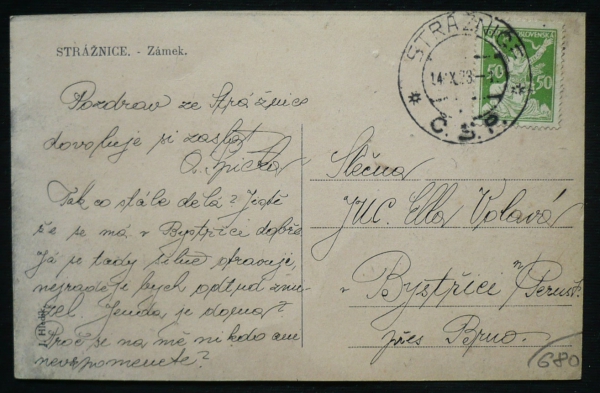 STRÁŽNICE. - Zámek.
Pozdrav ze Strážnice
dovoluje si zaslat
O. Špička
Tak co stále dělá? Jestě
že se má v Bystřici dobře
Já se tady silně stravuji,
nejraděj bych odtud zmi-
zel. Jenda je doma?
Proč se na mě nikdo ani
nevzpomenete?
STRÁŽNICE
14.X.23
Č.S.P.
SLOVENSKÁ
50 50
Slečna
JUC. Ella Volavá
v Bystřici n/Pernšt.
přes Brno.
680